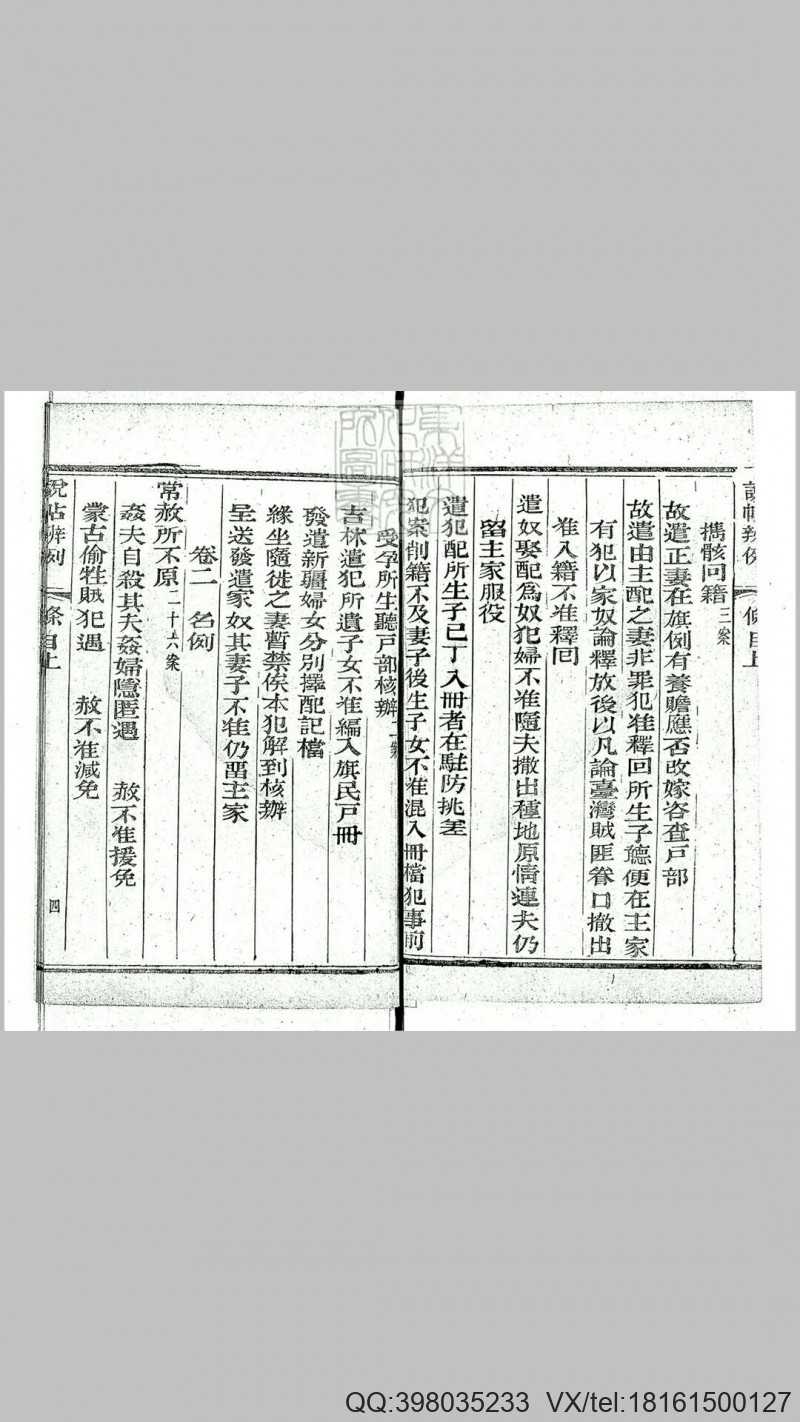 說帖辨例 條目上
攜骸回籍 三案
故遣正妻在旗例有養贍應否改嫁咨查戶部
故遣由主配之妻非罪犯准釋回所生子聽便在主家
有犯以家奴論釋放後以凡論臺灣賊匪眷口撤出
准入籍不准釋回
遣奴娶配為奴犯婦不准隨夫撒出種地原情連夫仍
留主家服役
遣犯配所生子已丁入冊者在駐防挑差
犯案削籍不及妻子後生子女不准混入冊檔犯事前
受孕所生聽戶部核辦 二案
吉林遣犯所遺子女不准編入旗民戶冊
發遣新疆婦女分別擇配記檔
緣坐隨徙之妻暫禁俟本犯解到核辦
呈送發遣家奴其妻子不准仍留主家
卷二 名例
常赦所不原 二十六案
姦夫自殺其夫姦婦隱匿遇 赦不准援免
蒙古偷牲賊犯遇 赦不准減免
說帖辨例 條目上 四
QQ:398035233 VX/tel:18161500127